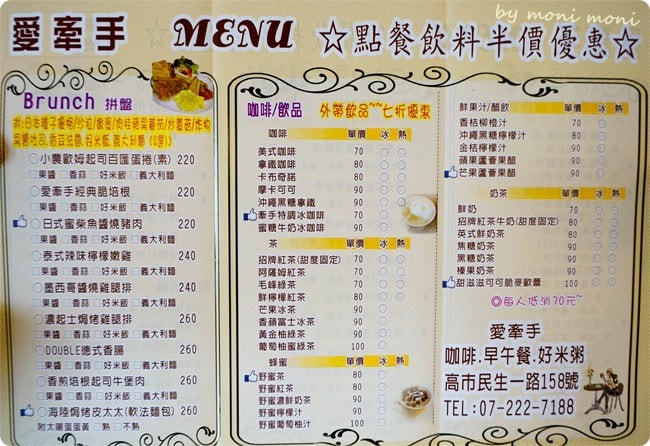 by moni moni
愛牽手 MENU ☆點餐飲料半價優惠☆
Brunch 拼盤
○小義歐姆起司百匯蛋捲(素) 220
□果醬 □香蒜 □好米飯 □義大利麵
○愛牽手經典脆培根 220
□果醬 □香蒜 □好米飯 □義大利麵
○日式蜜柴魚醬燒豬肉 220
□果醬 □香蒜 □好米飯 □義大利麵
○泰式辣味檸檬嫩雞 240
□果醬 □香蒜 □好米飯 □義大利麵
○墨西哥醬燒雞腿排 240
□果醬 □香蒜 □好米飯 □義大利麵
○濃起士焗烤雞腿排 260
□果醬 □香蒜 □好米飯 □義大利麵
○DOUBLE德式香腸 260
□果醬 □香蒜 □好米飯 □義大利麵
○香煎培根起司牛堡肉 260
□果醬 □香蒜 □好米飯 □義大利麵
○海陸焗烤皮太太(軟法麵包) 260
附太陽蛋蛋黃 □熟 □不熟
咖啡/飲品 外帶飲品~~七折優惠
咖啡 單價 冰 熱
美式咖啡 70
拿鐵咖啡 80
卡布奇諾 80
摩卡可可 90
沖繩黑糖拿鐵 90
牽手特調冰咖啡 70
蜜糖牛奶冰咖啡 90
茶 單價 冰 熱
招牌紅茶(甜度固定) 70
阿薩姆紅茶 70
毛峰綠茶 70
鮮檸檬紅茶 80
芒果冰茶 90
香蘋富士冰茶 90
黃金柚綠茶 90
葡萄柚蜜綠茶 90
蜂蜜 單價 冰 熱
野蜜茶 80
野蜜紅茶 80
野蜜濃鮮奶茶 90
野蜜檸檬汁 80
野蜜葡萄柚汁 80
鮮果汁/醋飲 單價 冰 熱
香桔柳橙汁 70
沖繩黑糖檸檬汁 80
金桔檸檬汁 90
蘋果蘆薈果醋 90
芒果蘆薈果醋 90
奶茶 單價 冰 熱
鮮奶 70
招牌紅茶牛奶(甜度固定) 80
英式鮮奶茶 80
焦糖奶茶 90
黑糖奶茶 90
榛果奶茶 90
甜滋滋可可脆麥歐蕾 100
◎每人低消70元~
愛牽手
咖啡.早午餐.好米粥
高市民生一路158號
TEL:07-222-7188